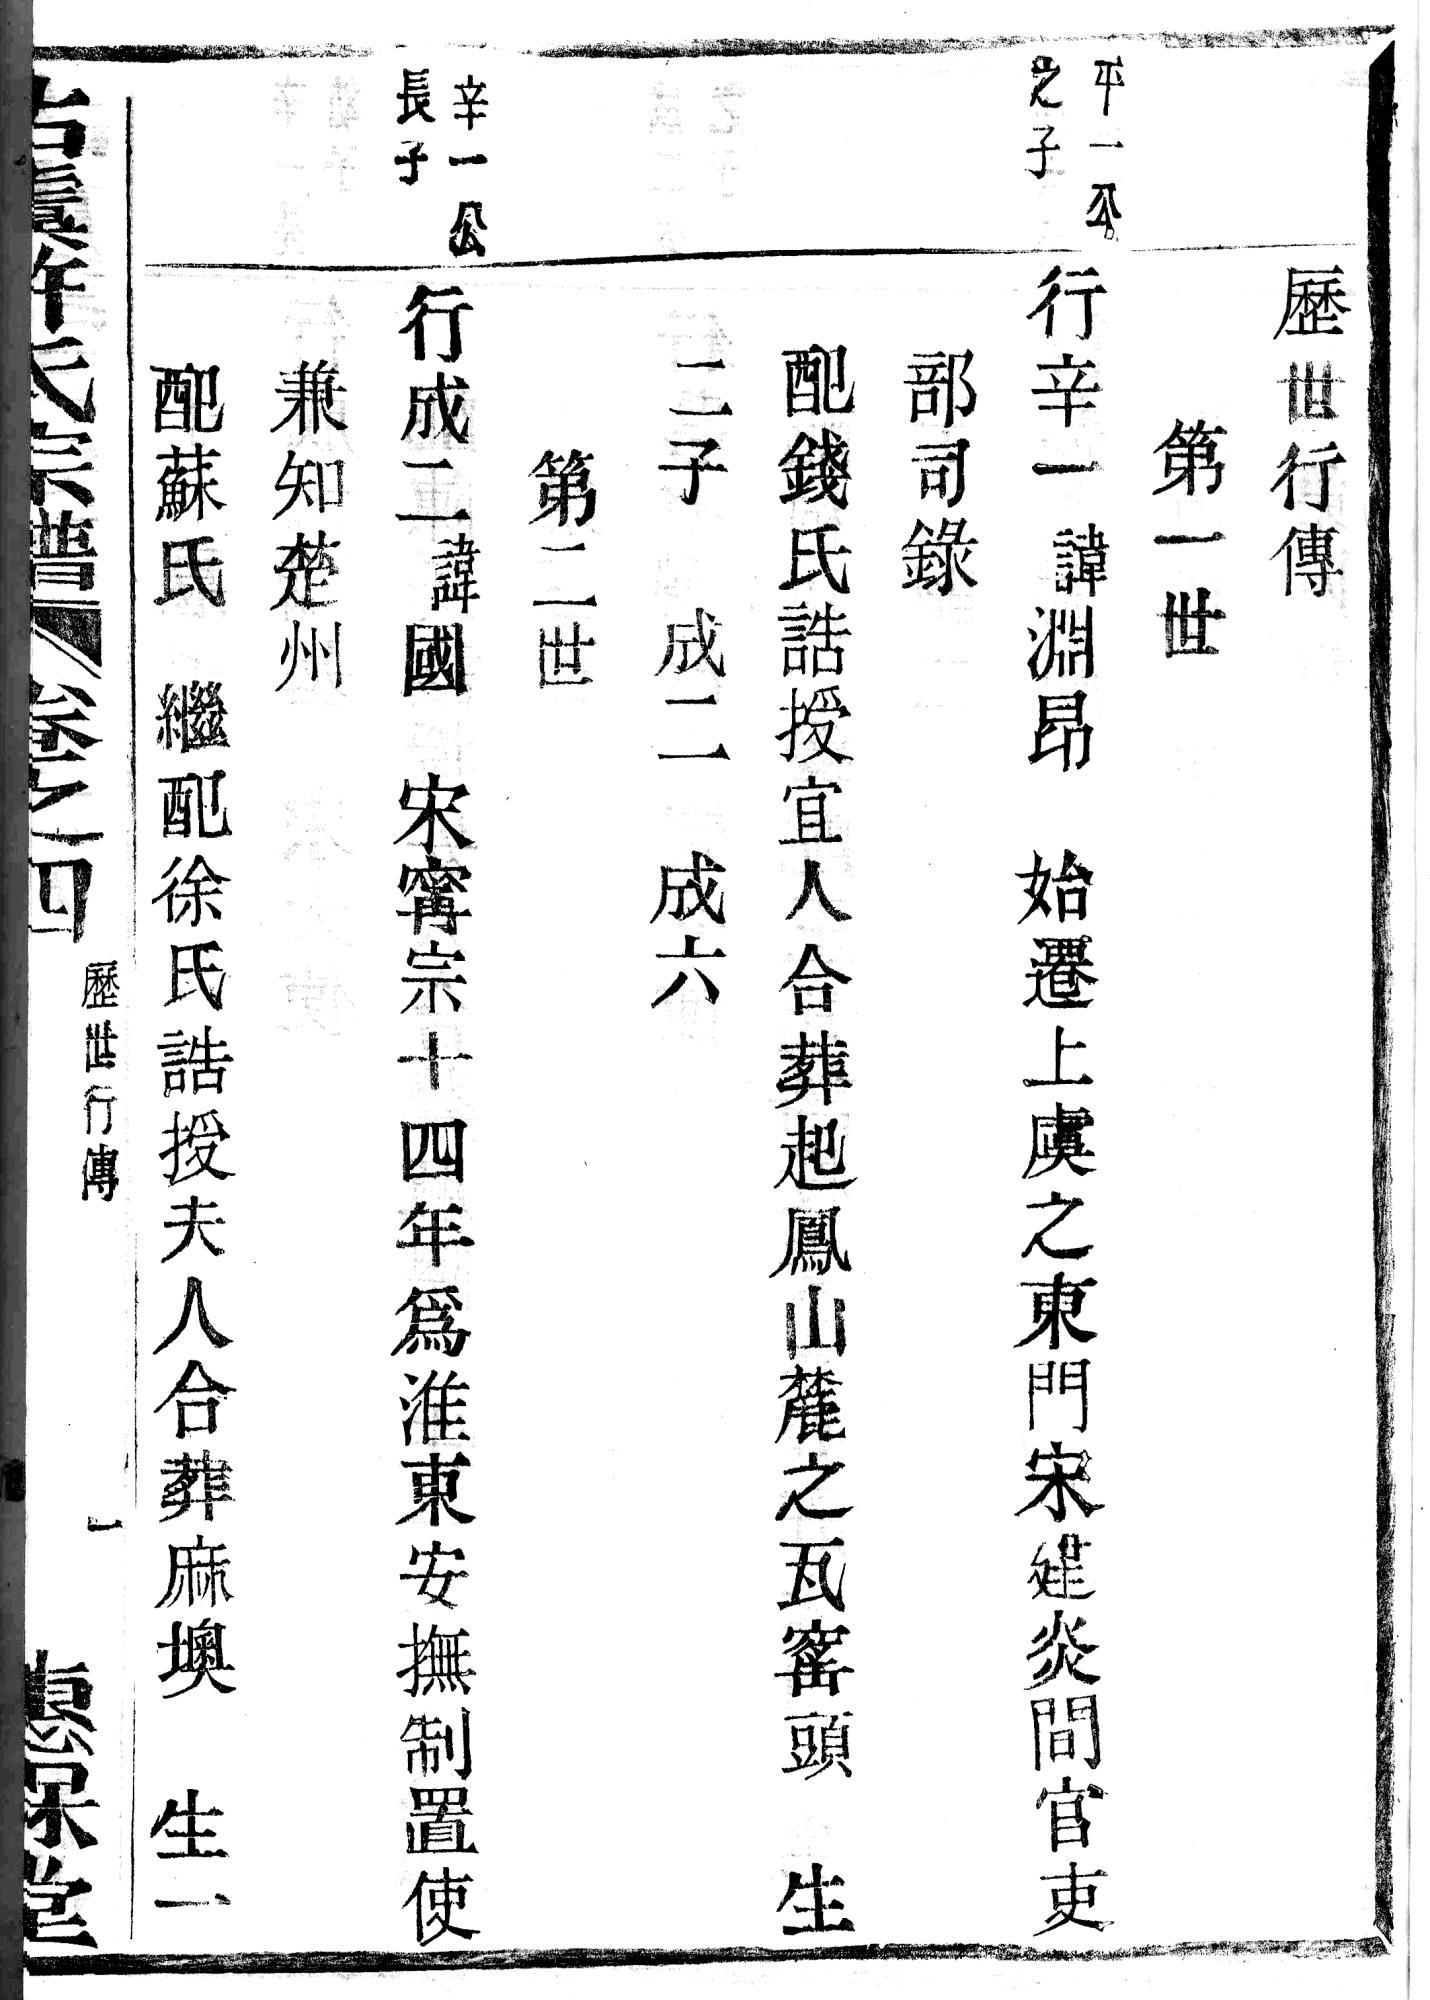 歷世行傳
第一世
平一公
之子
行辛一 諱淵昂 始遷上虞之東門宋建炎間官吏
部司錄
配錢氏誥授宜人合葬起鳳山麓之瓦窰頭 生
二子 成二 成六
第二世
辛一公
長子
行成二諱國 宋寗宗十四年爲淮東安撫制置使
兼知楚州
配蘇氏 繼配徐氏誥授夫人合葬麻墺 生一
古虞許氏宗譜 卷之四 歷世行傳 一 惠保堂